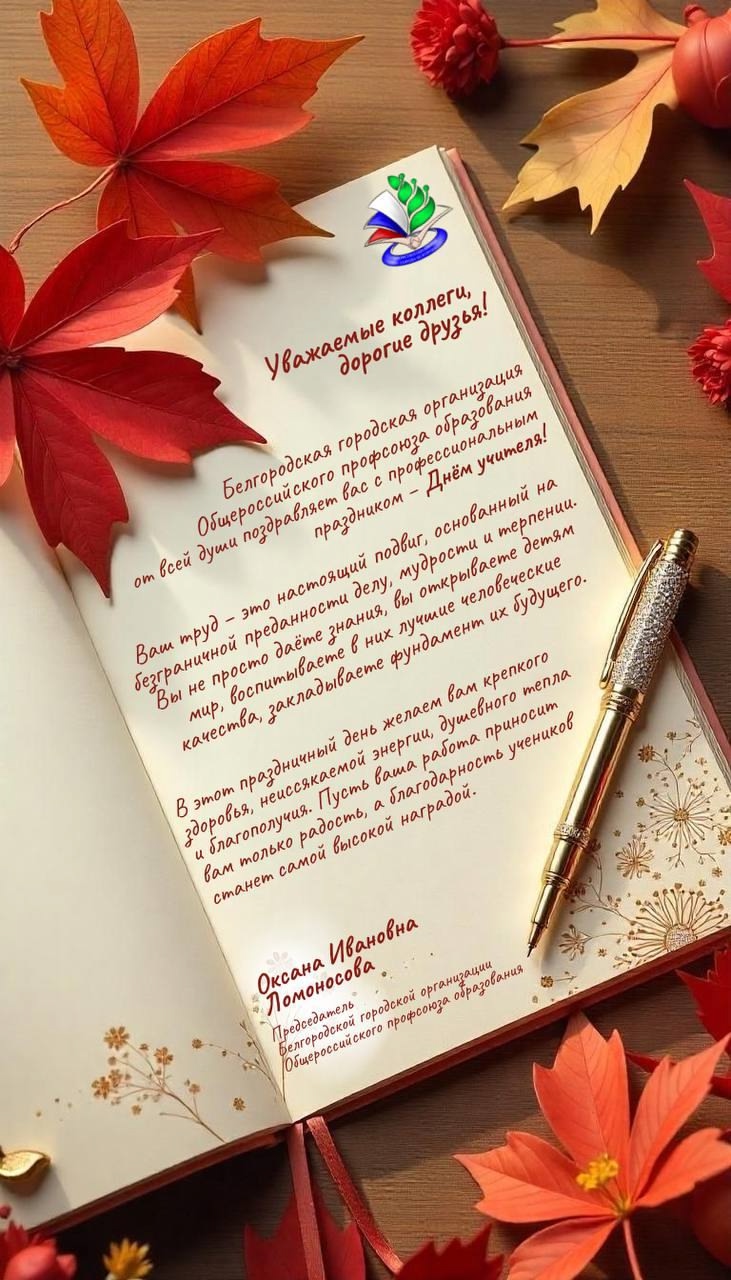 Уважаемые коллеги,
дорогие друзья!
Белгородская городская организация
Общероссийского профсоюза образования
от всей души поздравляет вас с профессиональным
праздником – Днём учителя!
Ваш труд – это настоящий подвиг, основанный на
безграничной преданности делу, мудрости и терпении.
Вы не просто даёте знания, вы открываете детям
мир, воспитываете в них лучшие человеческие
качества, закладываете фундамент их будущего.
В этот праздничный день желаем вам крепкого
здоровья, неиссякаемой энергии, душевного тепла
и благополучия. Пусть ваша работа приносит
вам только радость, а благодарность учеников
станет самой высокой наградой.
Оксана Ивановна
Ломоносова
Председатель
Белгородской городской организации
Общероссийского профсоюза образования